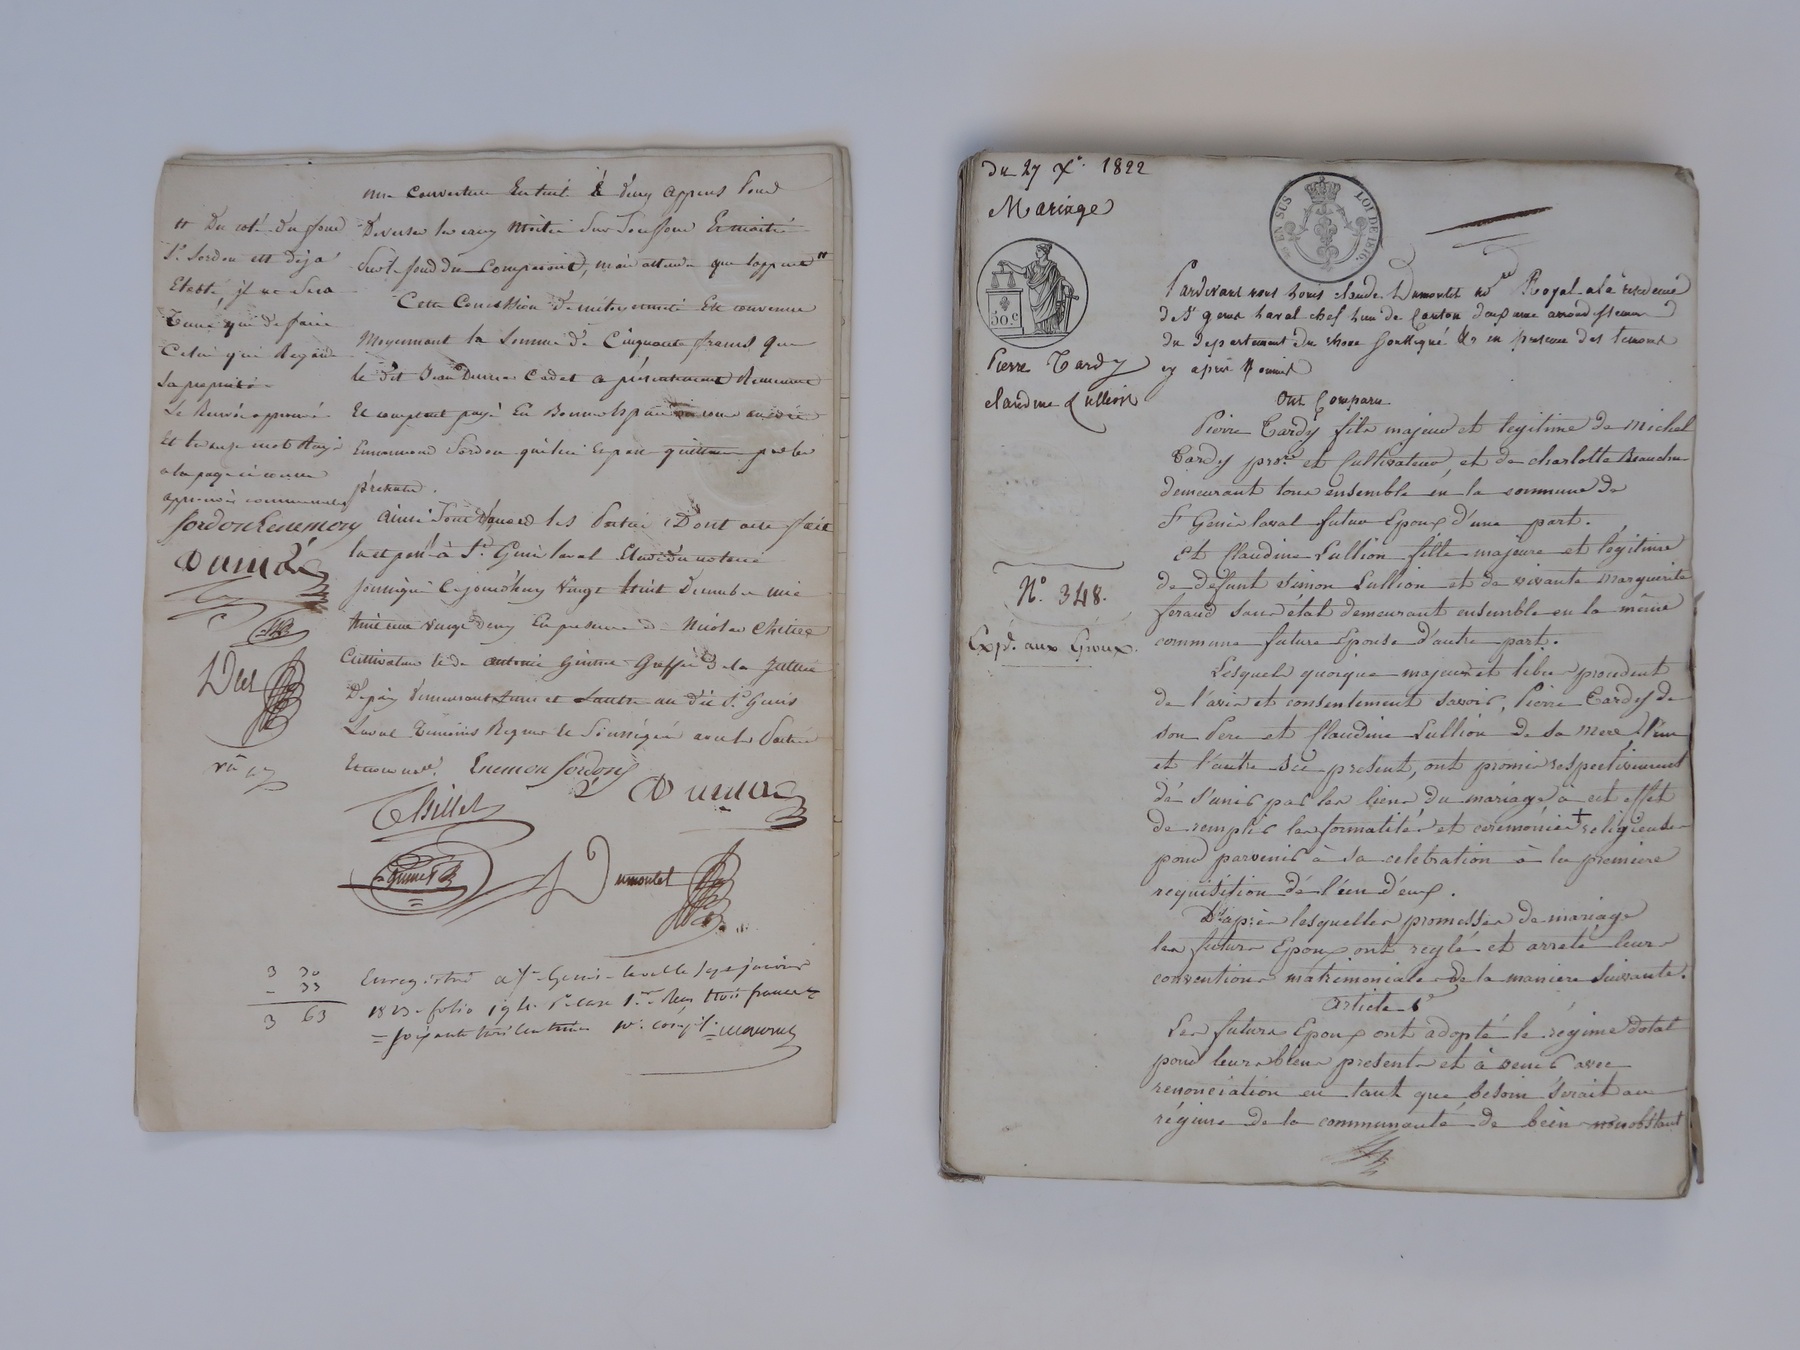 une couverture En tuile & deux appens Pour
Deverser les eaux Moitié Sur Le fond Et moitié
Sur le fond du Comparant, mais attendu que l'appent "
Cette Concession De mitoyenneté Est convenue
Moyennant la Somme de Cinquante francs que
le dit Jean Cadet a présentement Remise
Et comptant payé En Bonnes Espèces
Ennemond Sordon qui lui En passe quittance par les
présentes.
Ainsi Convenu les Parties, Dont acte fait
et passé à St. Genis laval Etude du notaire
soussigné Cejourdhuy Vingt huit Decembre mil
huit cent vingt deux En presence de Nicolas Chillet
Cultivateur & de antoine Guinet Greffier de la Justice
De paix Demeurant Lun et Lautre au dit St. Genis
Laval Temoins Requis & Soussignés avec les Parties
Et nous not.re Enemon Sordon
" Du coté Du fond
Sr. Sordon est deja
Etabli, il ne Sera
Tenu que de faire
Celui qui Regarde
Sa propriété.
Le Renvoi approuvé
Et les onze mots Rayés
a la page ci contre
approuvés
Sordon Enemon
Dum
Chillet
Guinet
Dumontet
3 30
- 33
3 63
Enregistré à St. Genis-laval le Sept janvier
1823. folio 194 R.o case 1.re Reçu trois francs
= soixante trois centimes
du 27 Xe. 1822
Mariage
EN SUS LOI DE 1816.
50.c
Pierre Tardy
Claudine Lullion
N.o 348.
Exp.d aux Epoux.
Pardevant nous Louis Claude Dumontet not.re Royal à la résidence
de St genis Laval chef lieu de Canton deuxieme arrondissement
du departement du rhone Soussigné & en presence des temoins
cy après nommés
Ont Comparu
Pierre Tardy fils majeur et legitime de Michel
Tardy pro.re et Cultivateur, et de charlotte Beauchu
demeurant tous ensemble en la commune de
St Genis laval futur Epoux d'une part.
Et Claudine Lullion fille majeure et légitime
de defunt Simon Lullion et de vivante Marguerite
feraud sans état demeurant ensemble en la même
commune future Epouse d'autre part.
Lesquels quoique majeurs et libres procedent
de l'avis et consentement savoir, Pierre Tardy de
son Pere et Claudine Lullion de sa mere l'un
et l'autre ici present, ont promis respectivement
de s'unir par les liens du mariage à cet effet
de remplir les formalités et ceremonies + religieuses
pour parvenir à sa celebration à la premiere
requisition de l'un d'eux.
D'après lesquelles promesses de mariage
les futurs Epoux ont reglé et arreté leurs
conventions matrimoniales de la maniere suivante.
Article 1.er
Les futurs Epoux ont adopté le régime dotal
pour leurs biens presents et à venir avec
renonciation en tant que besoin serait au
régime de la communauté de bien nonobstant